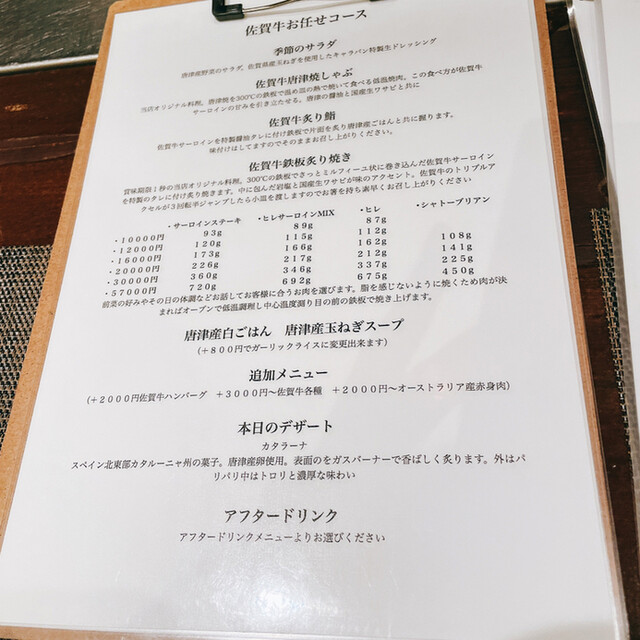 佐賀牛お任せコース
季節のサラダ
唐津産野菜のサラダ。佐賀県産玉ねぎを使用したキャラバン特製生ドレッシング
佐賀牛唐津焼しゃぶ
当店オリジナル料理。唐津焼を300℃の鉄板で温め皿の熱で焼いて食べる低温焼肉。この食べ方が佐賀牛
サーロインの甘みを引き立たせる。唐津の醤油と国産生ワサビと共に
佐賀牛炙り鮨
佐賀牛サーロインを特製醤油タレに付け鉄板で片面を炙り唐津産ごはんと共に握ります。
味付けはしてますのでそのままお召し上がりください。
佐賀牛鉄板炙り焼き
賞味期限1秒の当店オリジナル料理。300℃の鉄板でさっとミルフィーユ状に巻き込んだ佐賀牛サーロイン
を特製のタレに付け炙り焼きます。中に包んだ岩塩と国産生ワサビが味のアクセント。佐賀牛のトリプルア
クセルが3回転半ジャンプしたら小皿を渡しますのでお箸を持ち素早くお召し上がりください
・サーロインステーキ ・ヒレサーロインMIX ・ヒレ ・シャトーブリアン
・10000円 93g 89g 87g
・12000円 120g 115g 112g 108g
・16000円 173g 166g 162g 141g
・20000円 226g 217g 212g 225g
・30000円 360g 346g 337g 450g
・57000円 720g 692g 675g
前菜の好みやその日の体調などお話してお客様に合うお肉を選びます。脂を感じないように焼くため肉が決
まればオーブンで低温調理し中心温度測り目の前の鉄板で焼き上げます。
唐津産白ごはん 唐津産玉ねぎスープ
(+800円でガーリックライスに変更出来ます)
追加メニュー
(+2000円佐賀牛ハンバーグ +3000円～佐賀牛各種 +2000円～オーストラリア産赤身肉)
本日のデザート
カタラーナ
スペイン北東部カタルーニャ州の菓子。唐津産卵使用。表面のをガスバーナーで香ばしく炙ります。外はパ
リパリ中はトロリと濃厚な味わい
アフタードリンク
アフタードリンクメニューよりお選びください